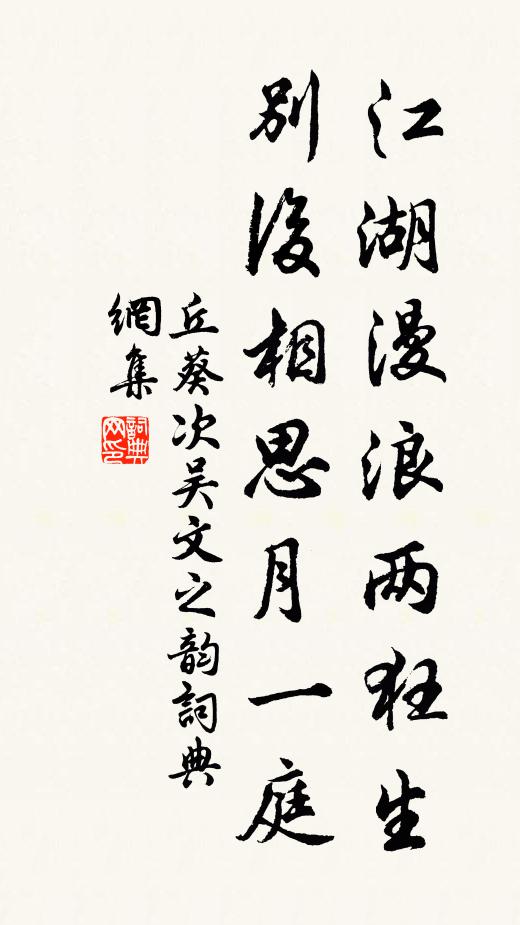 江湖漫浪两狂生
别後相思月一庭
丘葵次吴文之韵詞典
網集
詞典
网印